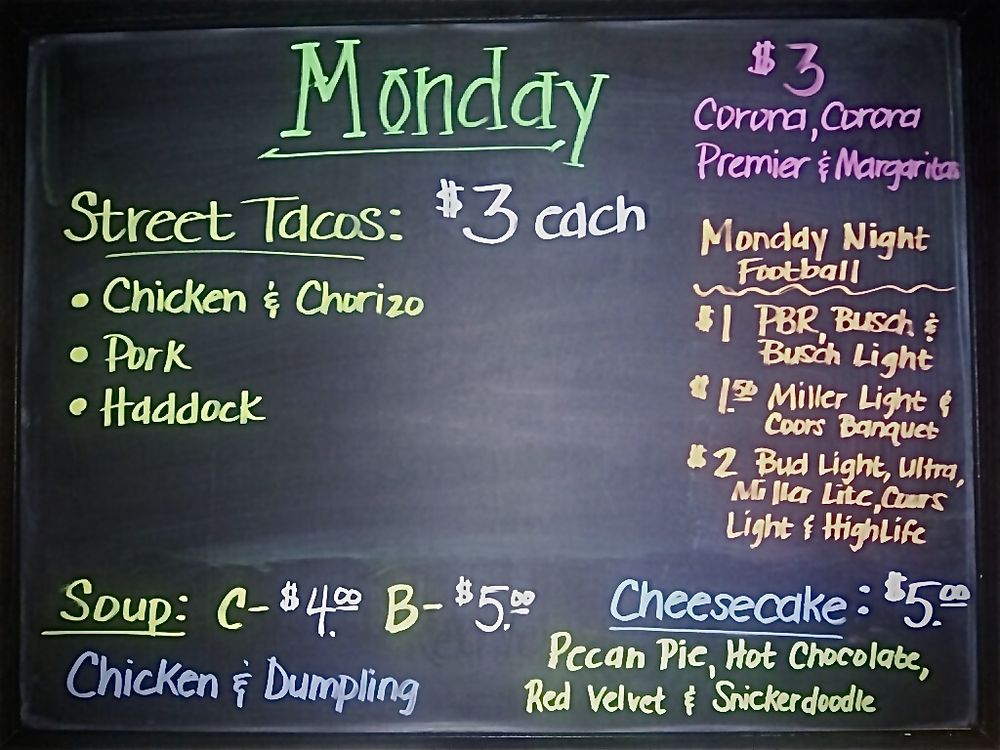 Monday
Street Tacos: $3 each
• Chicken & Chorizo
• Pork
• Haddock
$3
Corona, Corona
Premier & Margaritas
Monday Night
Football
$1 PBR, Busch &
Busch Light
$1.50 Miller Light &
Coors Banquet
$2 Bud Light, Ultra,
Miller Lite, Coors
Light & HighLife
Soup: C- $4.00 B- $5.00
Chicken & Dumpling
Cheesecake: $5.00
Pecan Pie, Hot Chocolate,
Red Velvet & Snickerdoodle